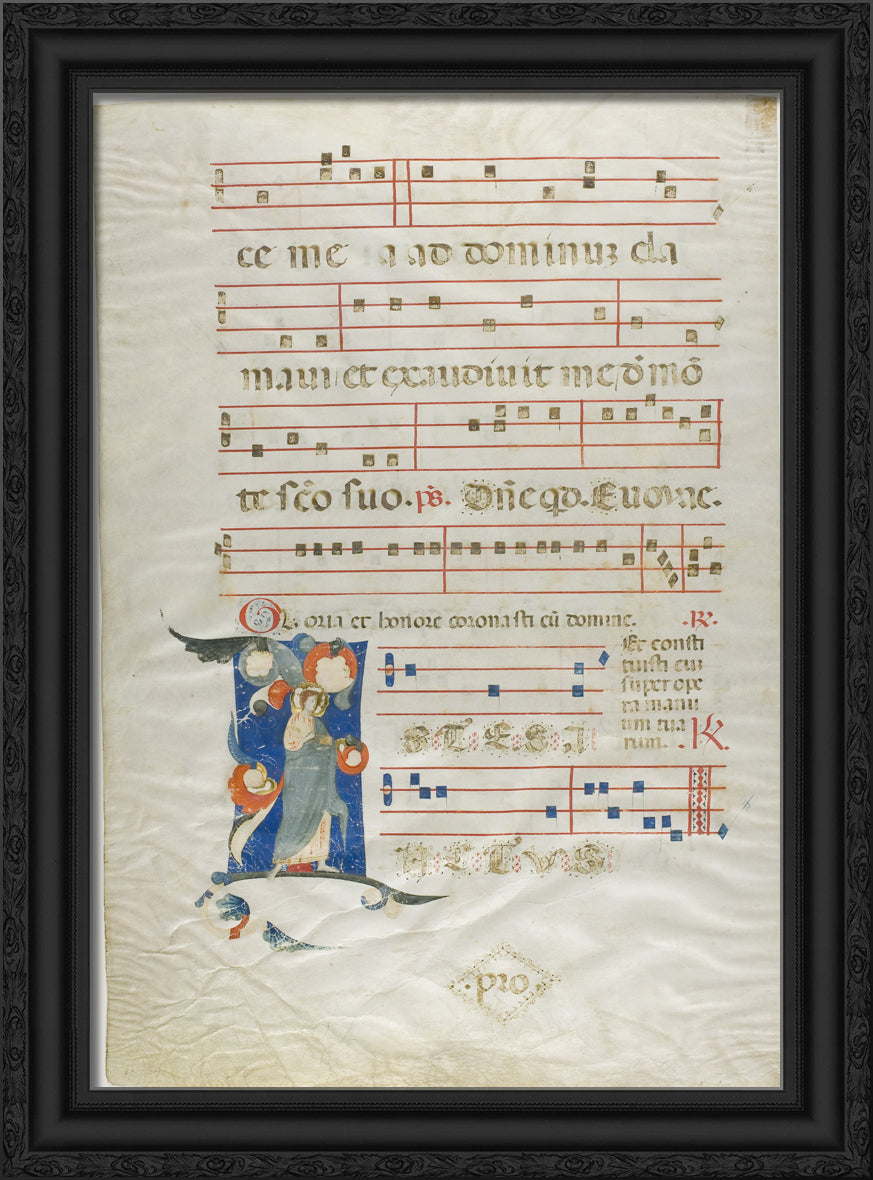 ce me a ad dominuʒ cla
maui et exaudiuit me d̄ mō
te sc̄o suo. p̄s. Dn̄e qd. Euovae.
Gloria et honore coronasti eū domine. .R.
Et consti
tuisti eū
super ope
ra manu
um tua
rum. .R.
STESI
HCTVS
.pro.